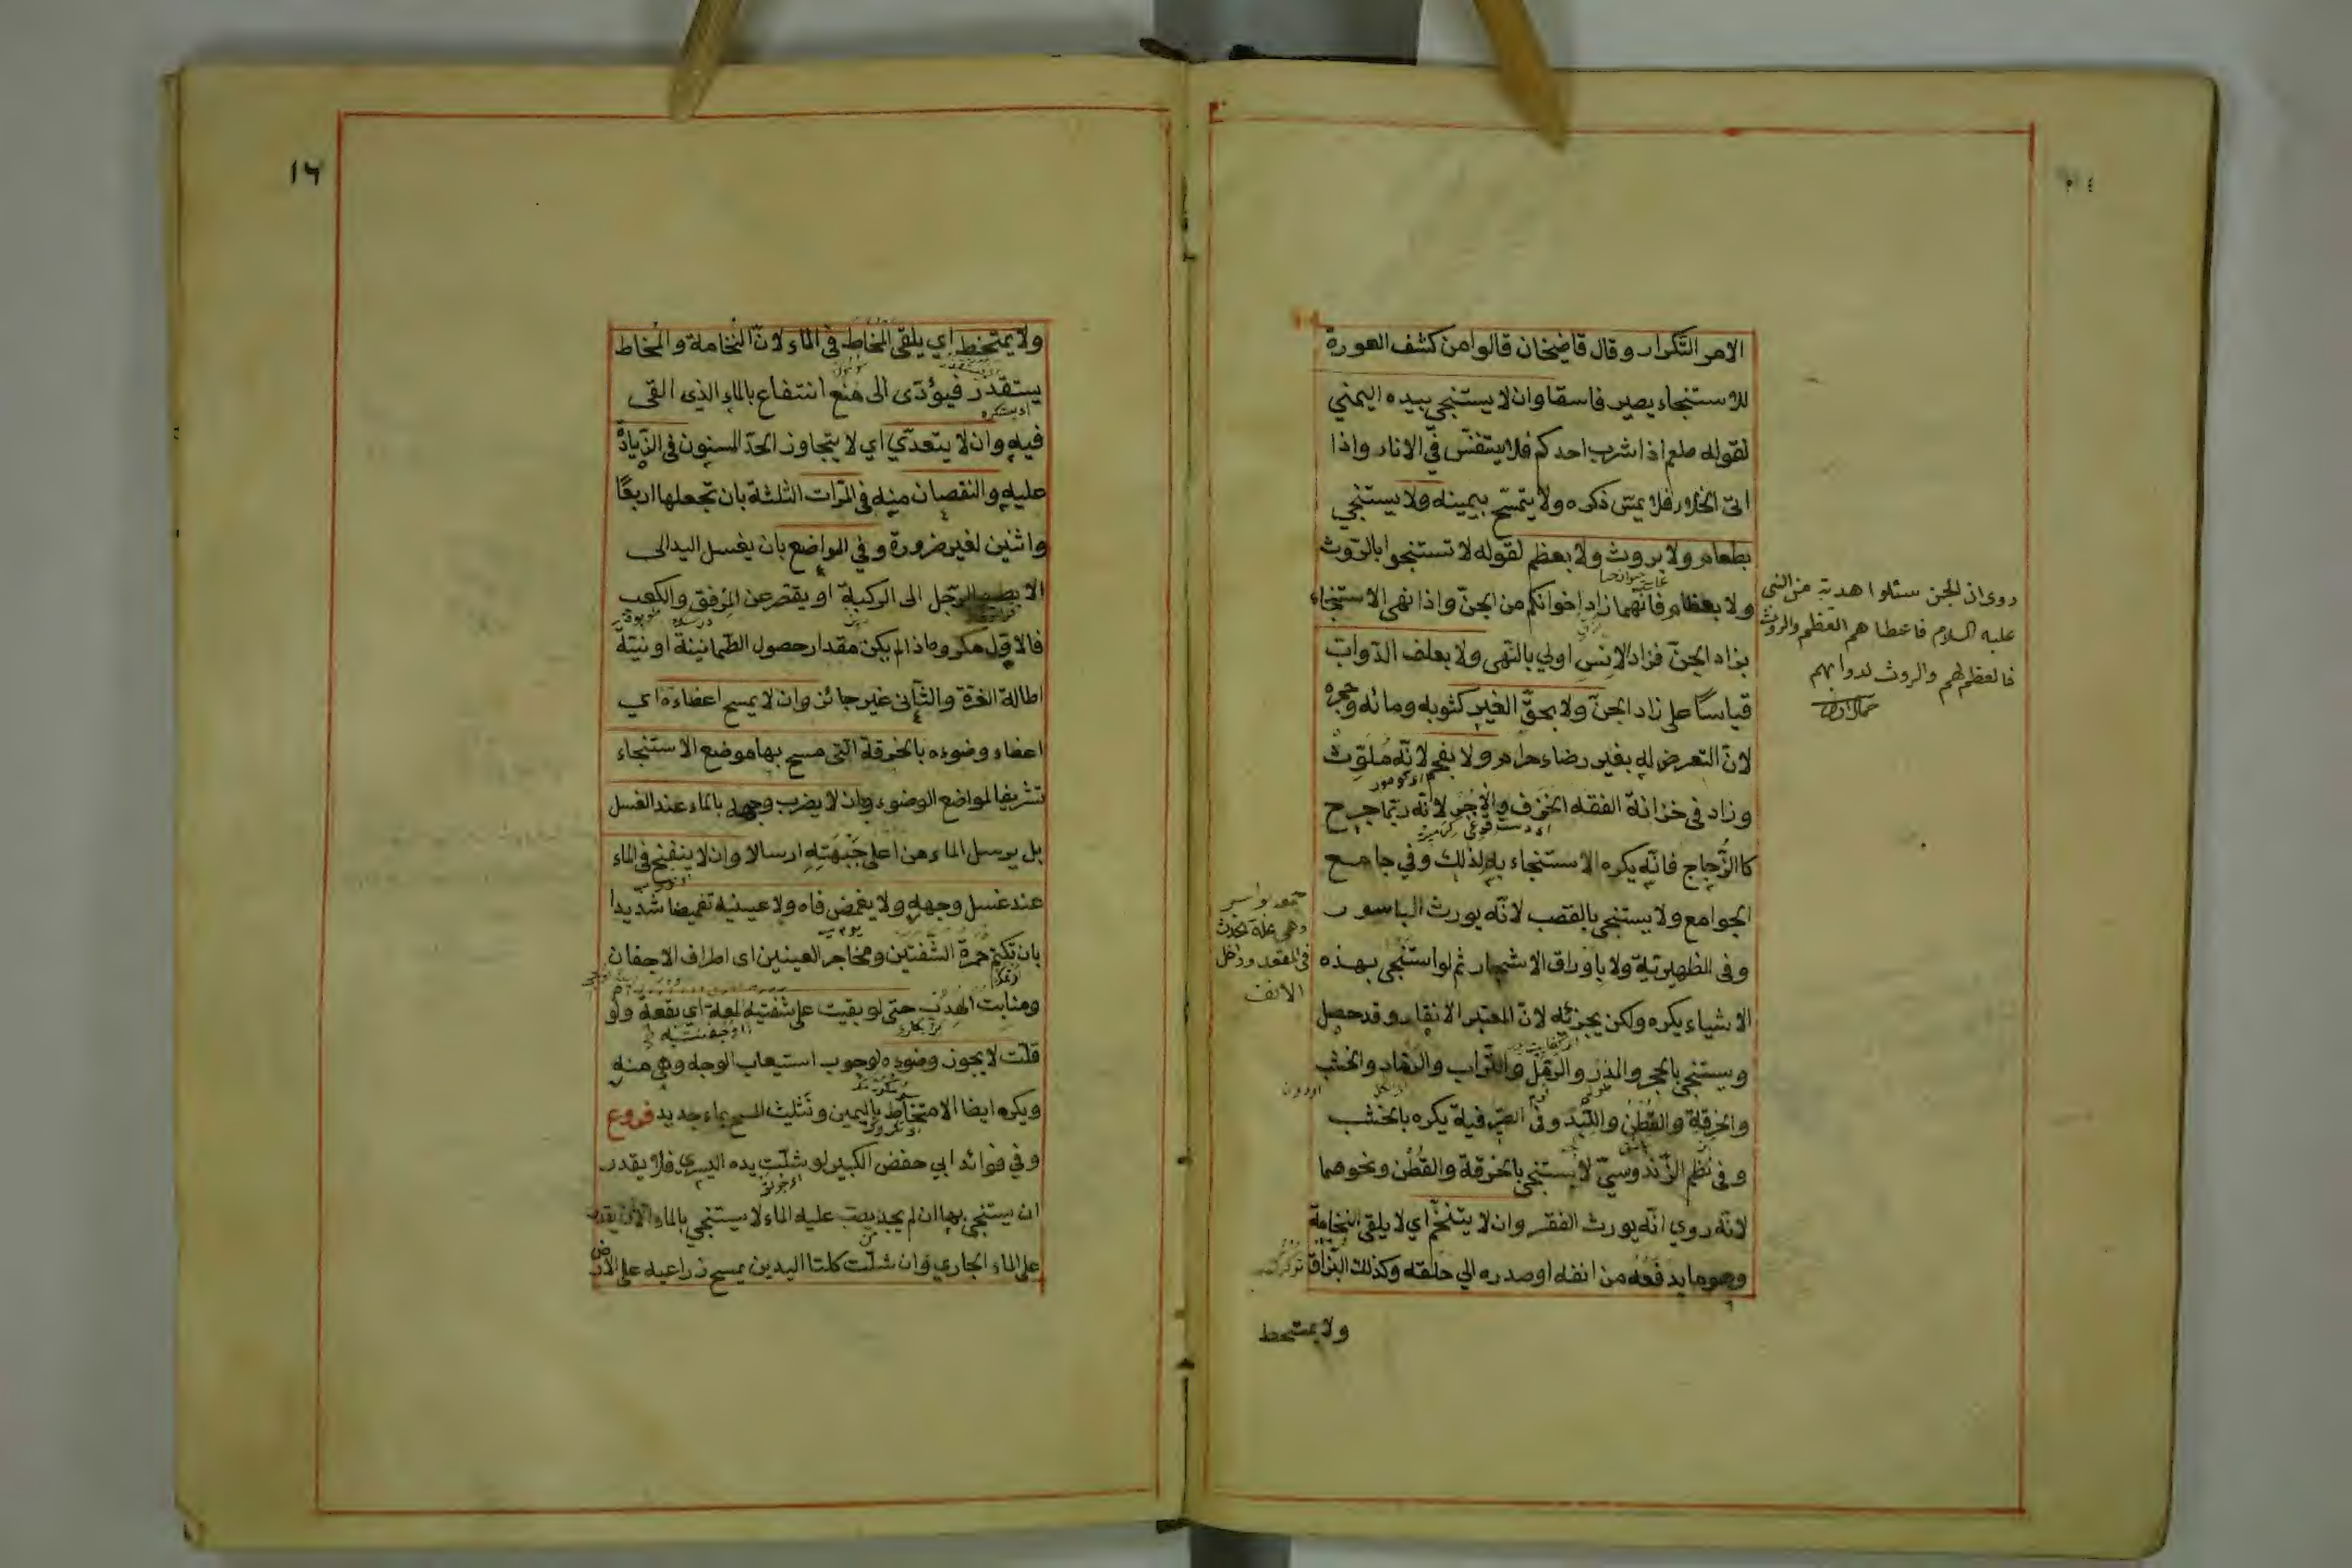 الامر التكرار وقال قاضيخان قالوا من كشف العورة
للاستنجاء يصير فاسقا وان لا يستنجي بيده اليمني
لقوله صلعم اذا شرب احدكم فلا يتنفس في الاناء واذا
اتى الخلاء فلا يمس ذكره ولا يتمسح بيمينه ولا يستنجي
بطعام ولا بروث ولا بعظم لقوله لا تستنجوا بالروث
ولا بعظام فانهما زاد اخوانكم من الجن واذا نهى الاستنجاء
بزاد الجن فزاد الانس اولي بالنهى ولا بعلف الدواب
قياسا على زاد الجن ولا بحق الغير كثوبه ومائه وحجره
لان التعرض له بغير رضاء حرام ولا بفحم لانه ملوث
وزاد في خزانة الفقه الخزف والآجر لانه ربما جرح
كالزجاج فانه يكره الاستنجاء به لذلك وفي جامع
الجوامع ولا يستنجى بالقصب لانه يورث الباسور
وفى الظهيرية ولا باوراق الاشجار ثم لو استنجى بهذه
الاشياء يكره ولكن يجزئه لان المعتبر الانقاء وقد حصل
ويستنجى بالحجر والمدر والرمل والتراب والرماد والخشب
والخرقة والقطن واللبد وفى الصيرفية يكره بالخشب
وفى نظم الزندوسي لا يستنجى بالخرقة والقطن ونحوهما
لانه روي انه يورث الفقر وان لا يتنخم اي لا يلقى النخامة
وهو ما يدفعه من انفه او صدره الي حلقه وكذلك البزاق
ولا يمتخط
روى ان الجن سئلوا هدية من النبى
عليه السلام فاعطاهم العظم والروث
فالعظم لهم والروث لدوابهم
جمعه بواسير
وهى علة تحدث
فى المقعد وداخل
الانف
١٦
ولا يمتخط اي يلقى المخاط فى الماء لان النخامة والمخاط
يستقذر فيؤدى الى منع انتفاع بالماء الذى القى
فيه وان لا يتعدي اي لا يتجاوز الحد المسنون فى الزيادة
عليه والنقصان منه فى المرات الثلثة بان تجعلها اربعا
واثنين لغير ضرورة وفي المواضع بان يغسل اليد الى
الابط والرجل الى الركبة او يقصر عن المرفق والكعب
فالاول مكروه اذا لم يكن مقدار حصول الطمانينة او نية
اطالة الغرة والثانى غير جائز وان لا يمسح اعضاءه اي
اعضاء وضوءه بالخرقة التى مسح بها موضع الاستنجاء
تشريفا لمواضع الوضوء وان لا يضرب وجهه بالماء عند الغسل
بل يرسل الماء من اعلى جبهته ارسالا وان لا ينفخ فى الماء
عند غسل وجهه ولا يغمض فاه ولا عينيه تغميضا شديدا
بان تكتم حمرة الشفتين ومحاجر العينين اى اطراف الاجفان
ومنابت الهدب حتى لو بقيت على شفتيه لمعة اي بقعة ولو
قلت لا يجوز وضوءه لوجوب استيعاب الوجه وهى منه
ويكره ايضا الامتخاط باليمين وتثليث المسح بماء جديد فروع
وفي فوائد ابي حفص الكبير لو شلت يده اليسرى فلا يقدر
ان يستنجى بها ان لم يجد يصب عليه الماء لا يستنجي بالماء الا ان يقدر
على الماء الجاري وان شلت كلتا اليدين يمسح ذراعيه على الارض